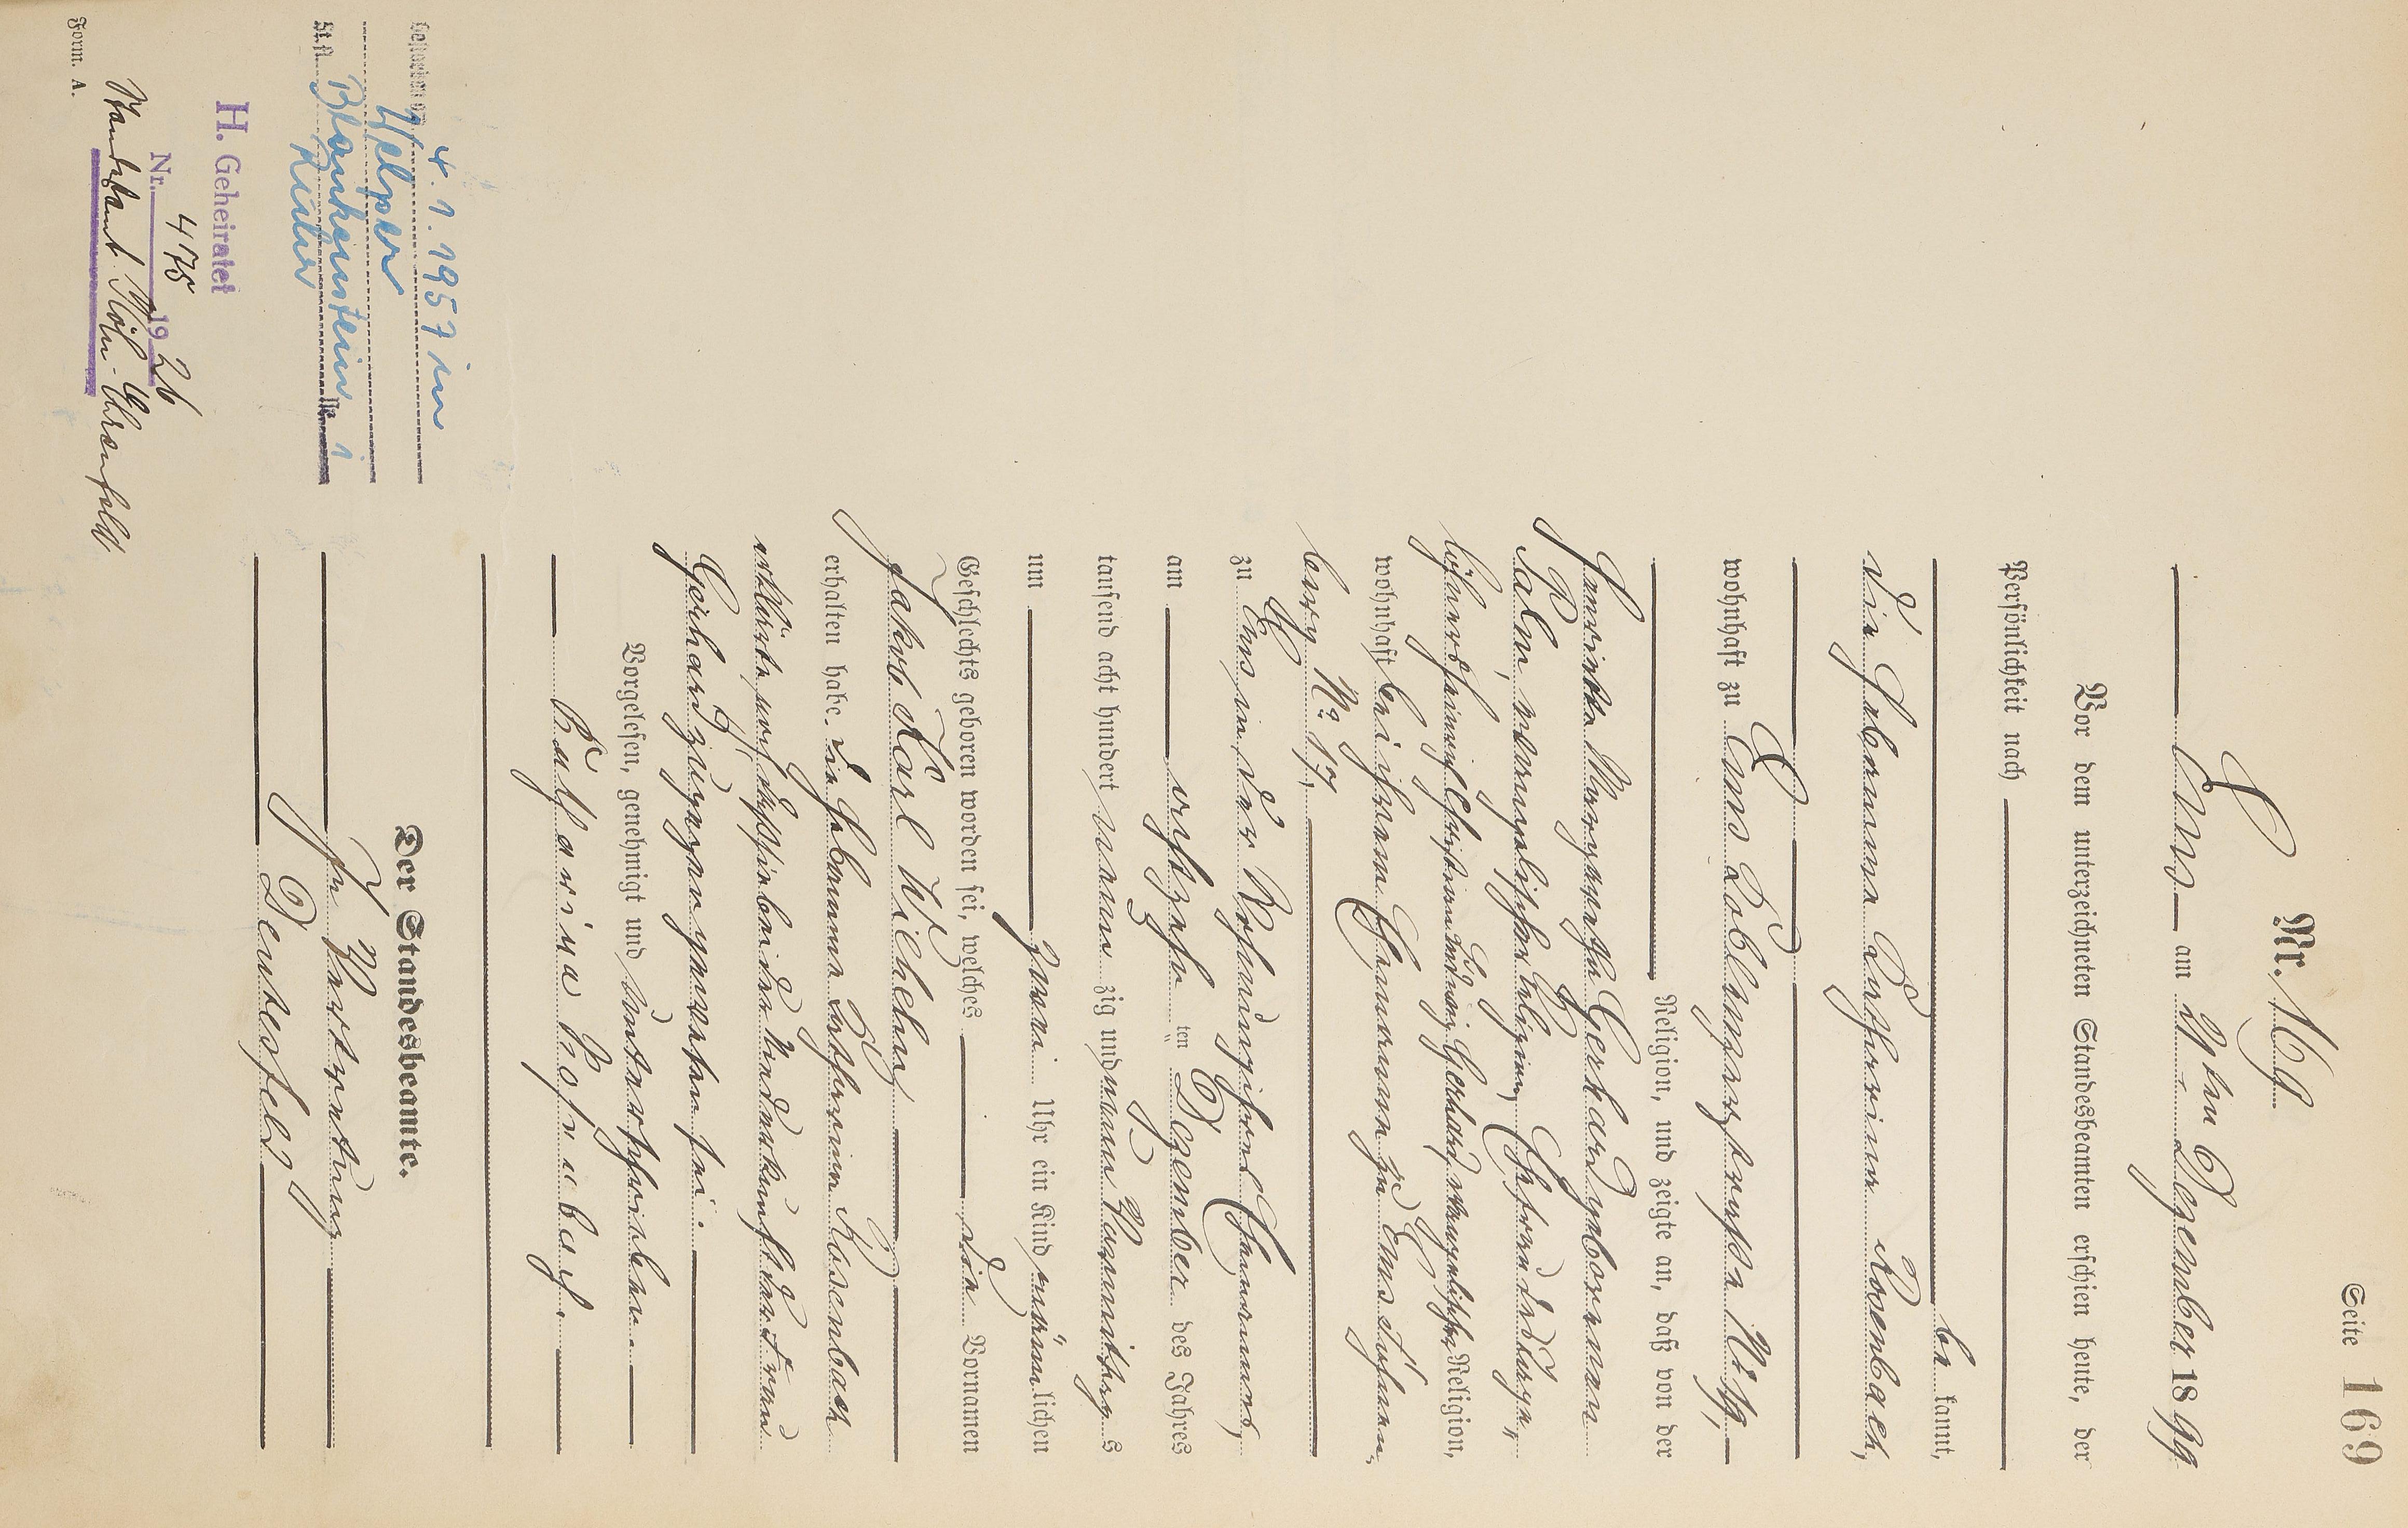 Seite 169
Nr. 169
Ems am 21ten Dezember 1899
Vor dem unterzeichneten Standesbeamten erschien heute, der
Persönlichkeit nach
be kannt,
die Hebamme Catharina Rosenbach,
wohnhaft zu Ems Coblenzerstraße
Religion, und zeigte an, daß von der
Henriette Margarethe Gerhard geborenen
Palm, evangelischer Religion, Ehefrau des Tage-
löhners Heinrich Christian Ludwig Gerhard, evangelischer Religion,
wohnhaft bei ihrem Ehemann zu Ems
berg No 17,
zu Ems in der Wohnung ihres Ehemanns,
am achtzehn ten Dezember des Jahres
tausend acht hundert neun zig und neun Vormittags
um zwei Uhr ein Kind männlichen
Geschlechts geboren worden sei, welches die Vornamen
Jakob Karl Wilhelm
erhalten habe. Die Hebamme Catharina Rosenbach
erklärte, daß sie bei der Niederkunft der Frau
Gerhard zugegen gewesen sei.
Vorgelesen, genehmigt und unterschrieben.
Katharina Rosenbach.
Der Standesbeamte.
In Vertretung
Deutesfeld
4.1.1957 in
Welper
St.A. Blankenstein Nr. 1
Ruhr
H. Geheiratet
Nr. 475 1926
Standesamt Köln-Ehrenfeld
Form. A.